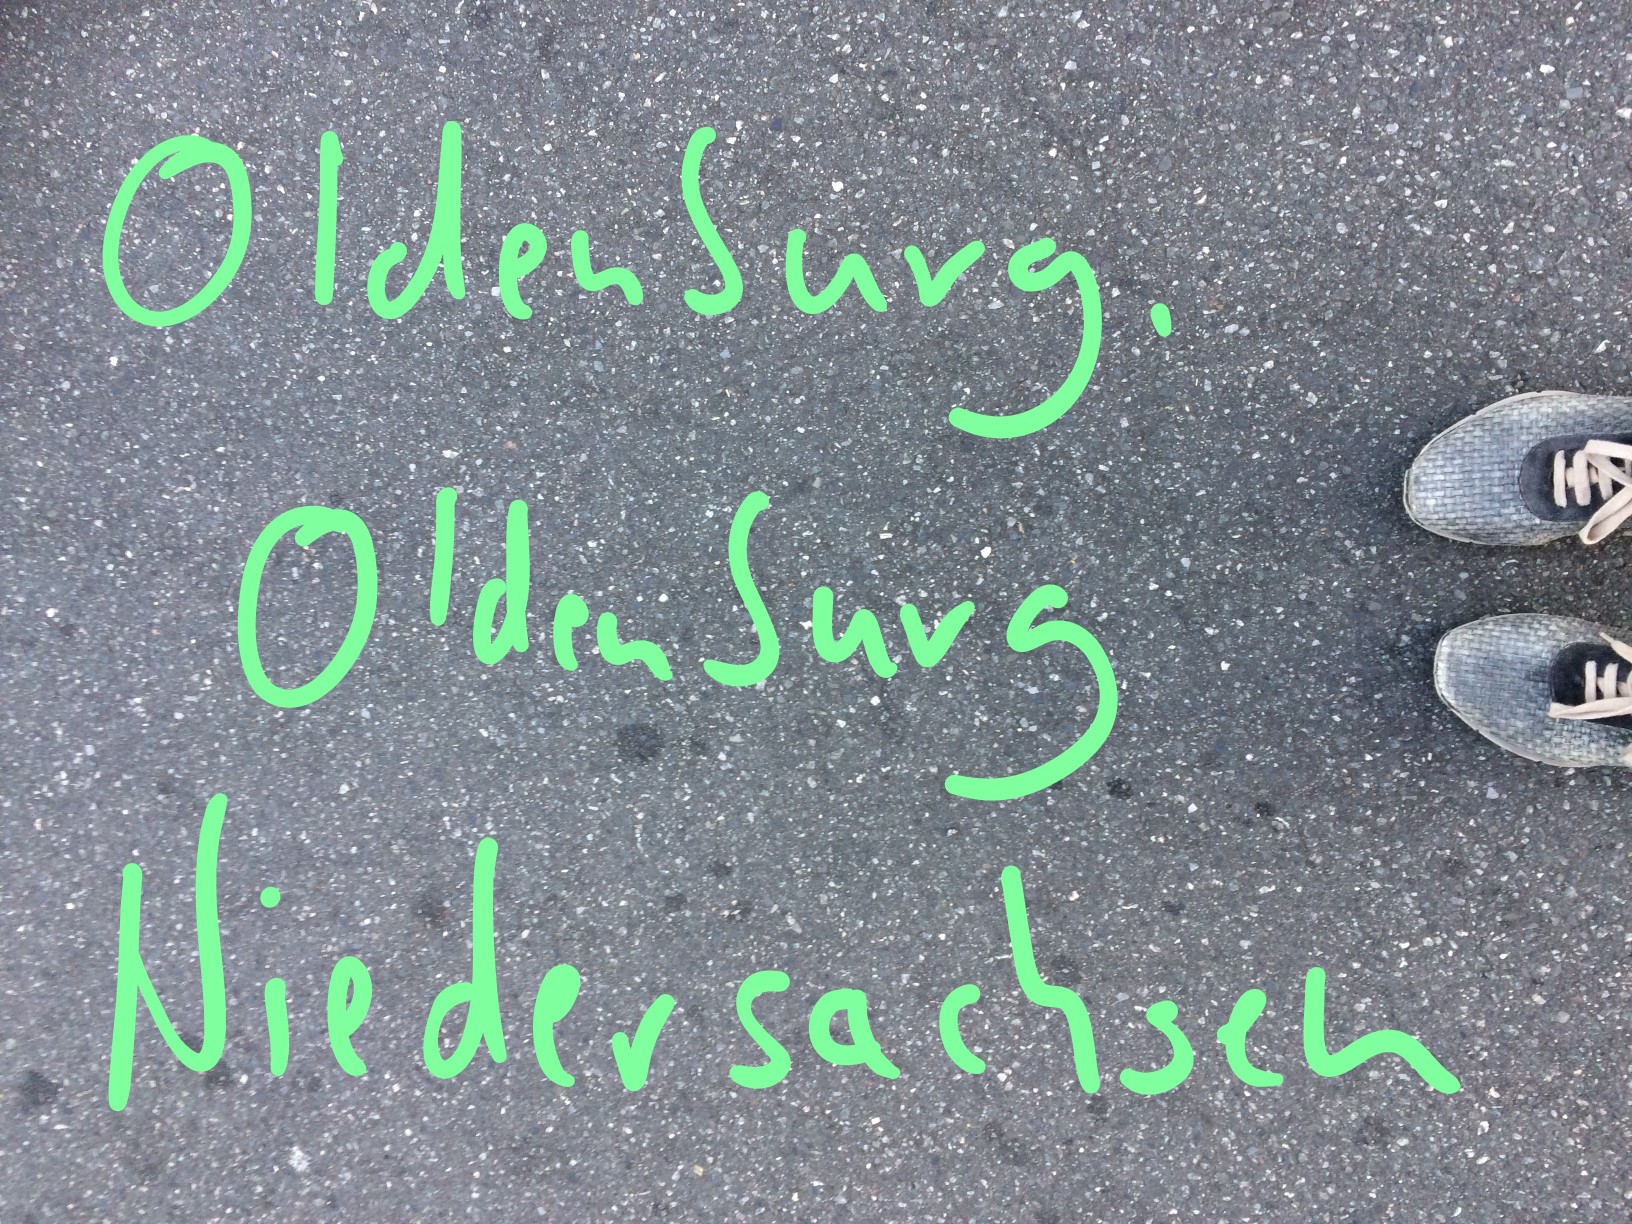 Oldenburg.
Oldenburg
Niedersachsen